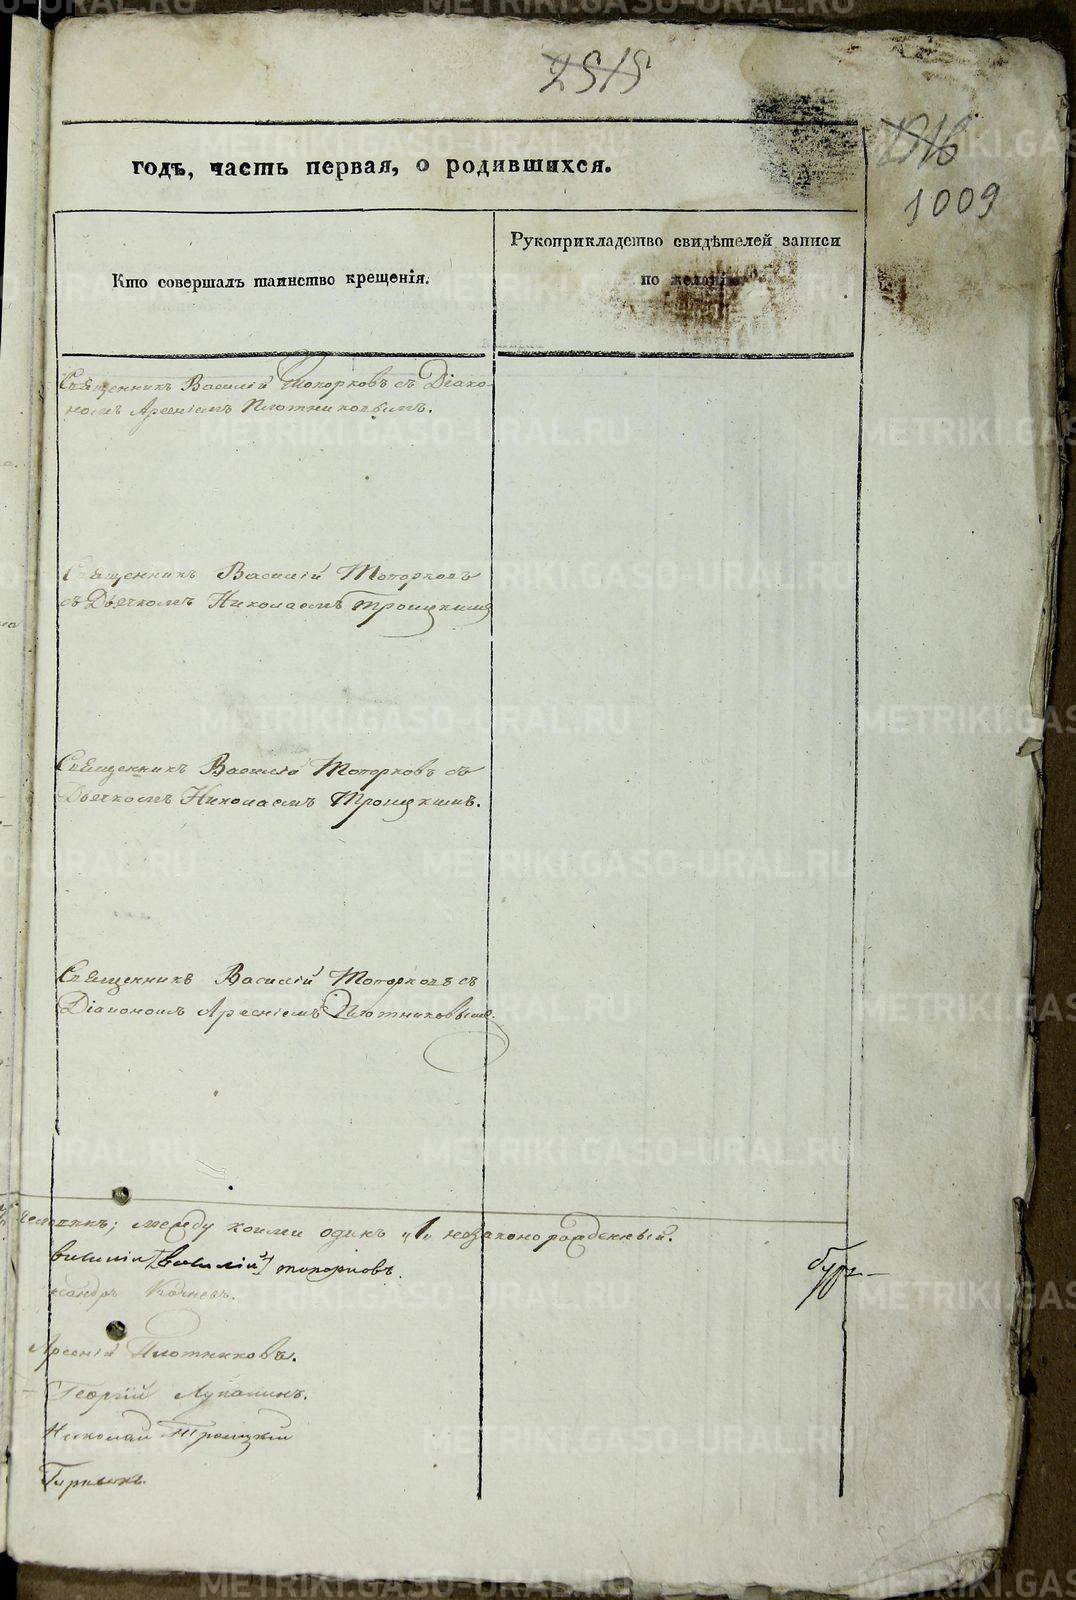 2515
1009
годъ, часть первая, о родившихся.
Кто совершалъ таинство крещенія.
Рукоприкладство свидѣтелей записи
по желанію.
Священникъ Василій Топорковъ съ Діако-
номъ Арсеніемъ Плотниковымъ.
Священникъ Василій Топорковъ
съ Дьячкомъ Николаемъ Троицкимъ
Священникъ Василій Топорковъ съ
Дьячкомъ Николаемъ Троицкимъ.
Священникъ Василій Топорковъ съ
Діакономъ Арсеніемъ Плотниковымъ.
человѣкъ; между коими одинъ „1„ незаконорожденный.
василій Топорковъ.
Арсеній Плотниковъ.
Георгій Лукашинъ.
Николай Троицкій
METRIKI.GASO-URAL.RU